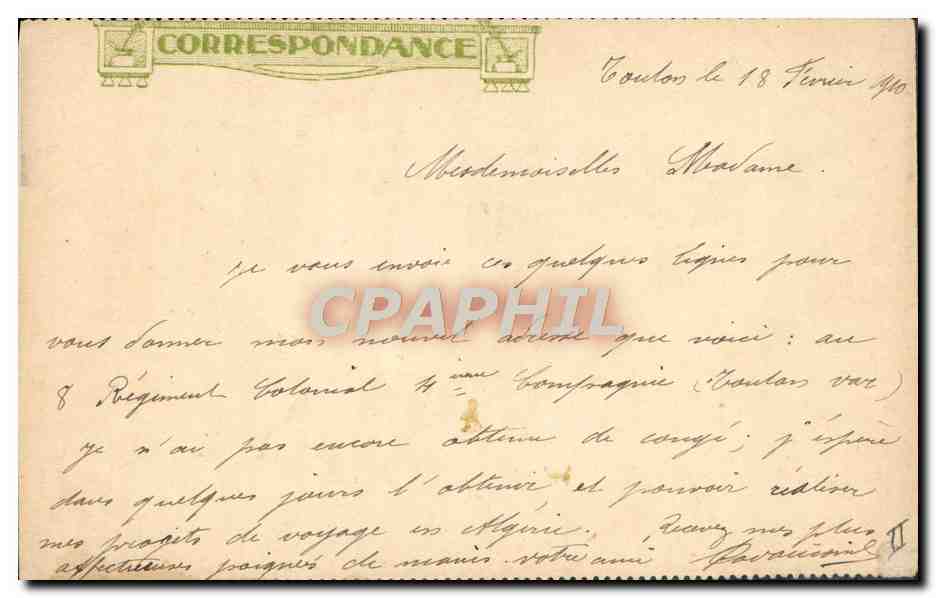 CORRESPONDANCE
Toulon le 18 Février 1910
Mesdemoiselles Madame.
Je vous envoie ces quelques lignes pour
CPAPHIL
vous donner mon nouvel adresse que voici : au
8 Régiment Colonial 4ième Compagnie (Toulon var)
Je n'ai pas encore obtenu de congé ; j'éspère
dans quelques jours l'obtenir, et pouvoir réaliser
mes projets de voyage en Algérie. Recevez mes plus
affectueuses poignés de mains. votre ami